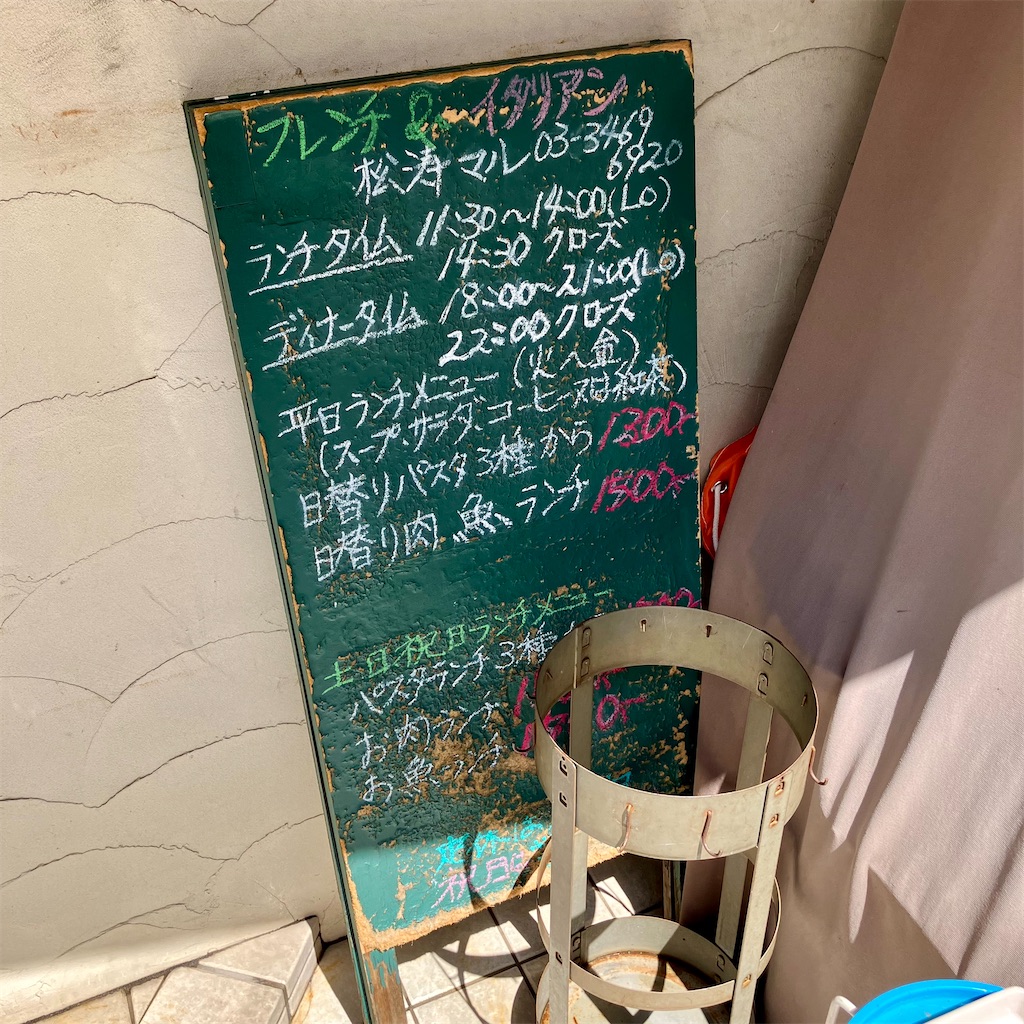 フレンチ & イタリアン
松涛 マル 03-3469
6920
ランチタイム 11:30〜14:00(LO)
14:30 クローズ
ディナータイム 18:00〜21:00(LO)
22:00 クローズ
平日ランチメニュー (火〜金)
(スープ、サラダ、コーヒー又は紅茶)
日替りパスタ3種から 1300-
日替り肉、魚、ランチ 1500-
土日祝日ランチメニュー
パスタランチ3種
お肉ランチ
お魚ランチ
祝日